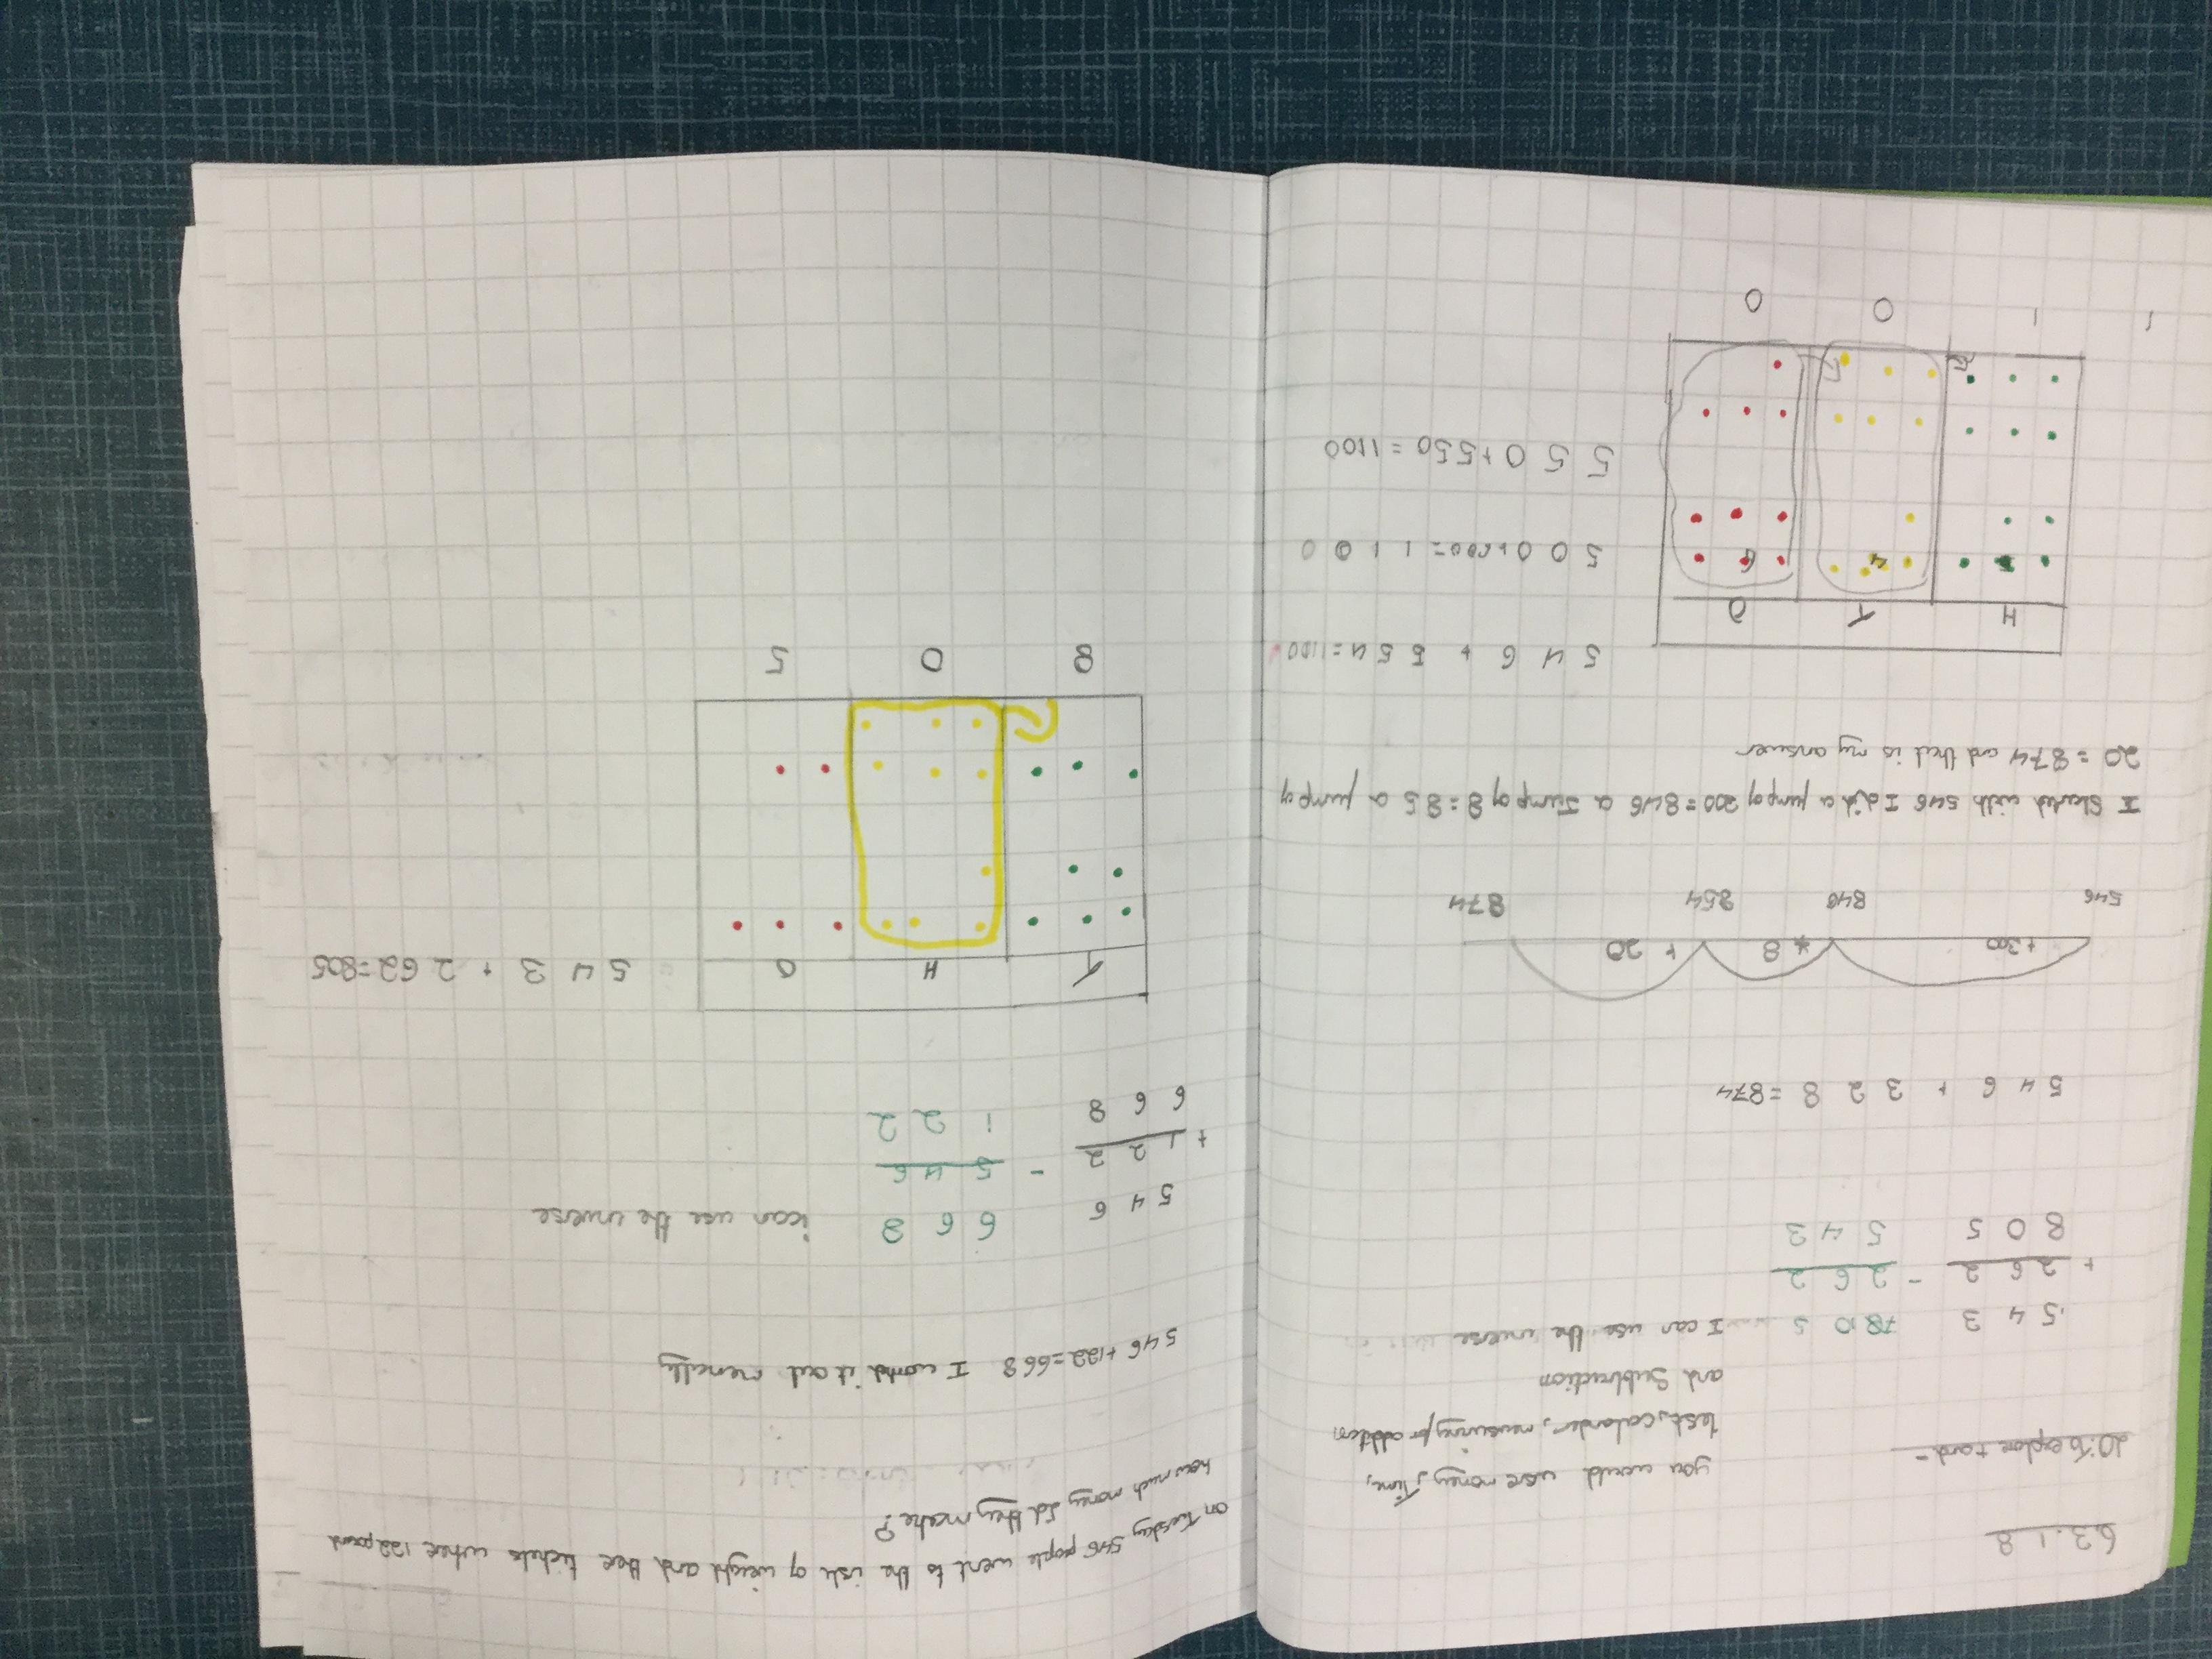 6.3.18
LO: To explore + and -
you would use money, Time,
test, calander, measuring for addition
and Subtraction
543 7810 5 I can use the inverse
+ 262 - 262
805 543
546 + 328 = 874
+300 + 8 + 20
546 846 854 874
I started with 546 I did a jump of 300 = 846 a Jump of 8 = 85 a jump of
20 = 874 and that is my answer
546 + 554 = 1100
H T O
500 + 600 = 1100
550 + 550 = 1100
1 1 0 0
on Tuesday 546 people went to the isle of wight and thee tickets where 122 pound
how much money did they make?
546 + 122 = 668 I workd it out mentally
546 668 ican use the inverse
+ 122 - 546
668 122
T H O 543 + 262 = 805
8 0 5